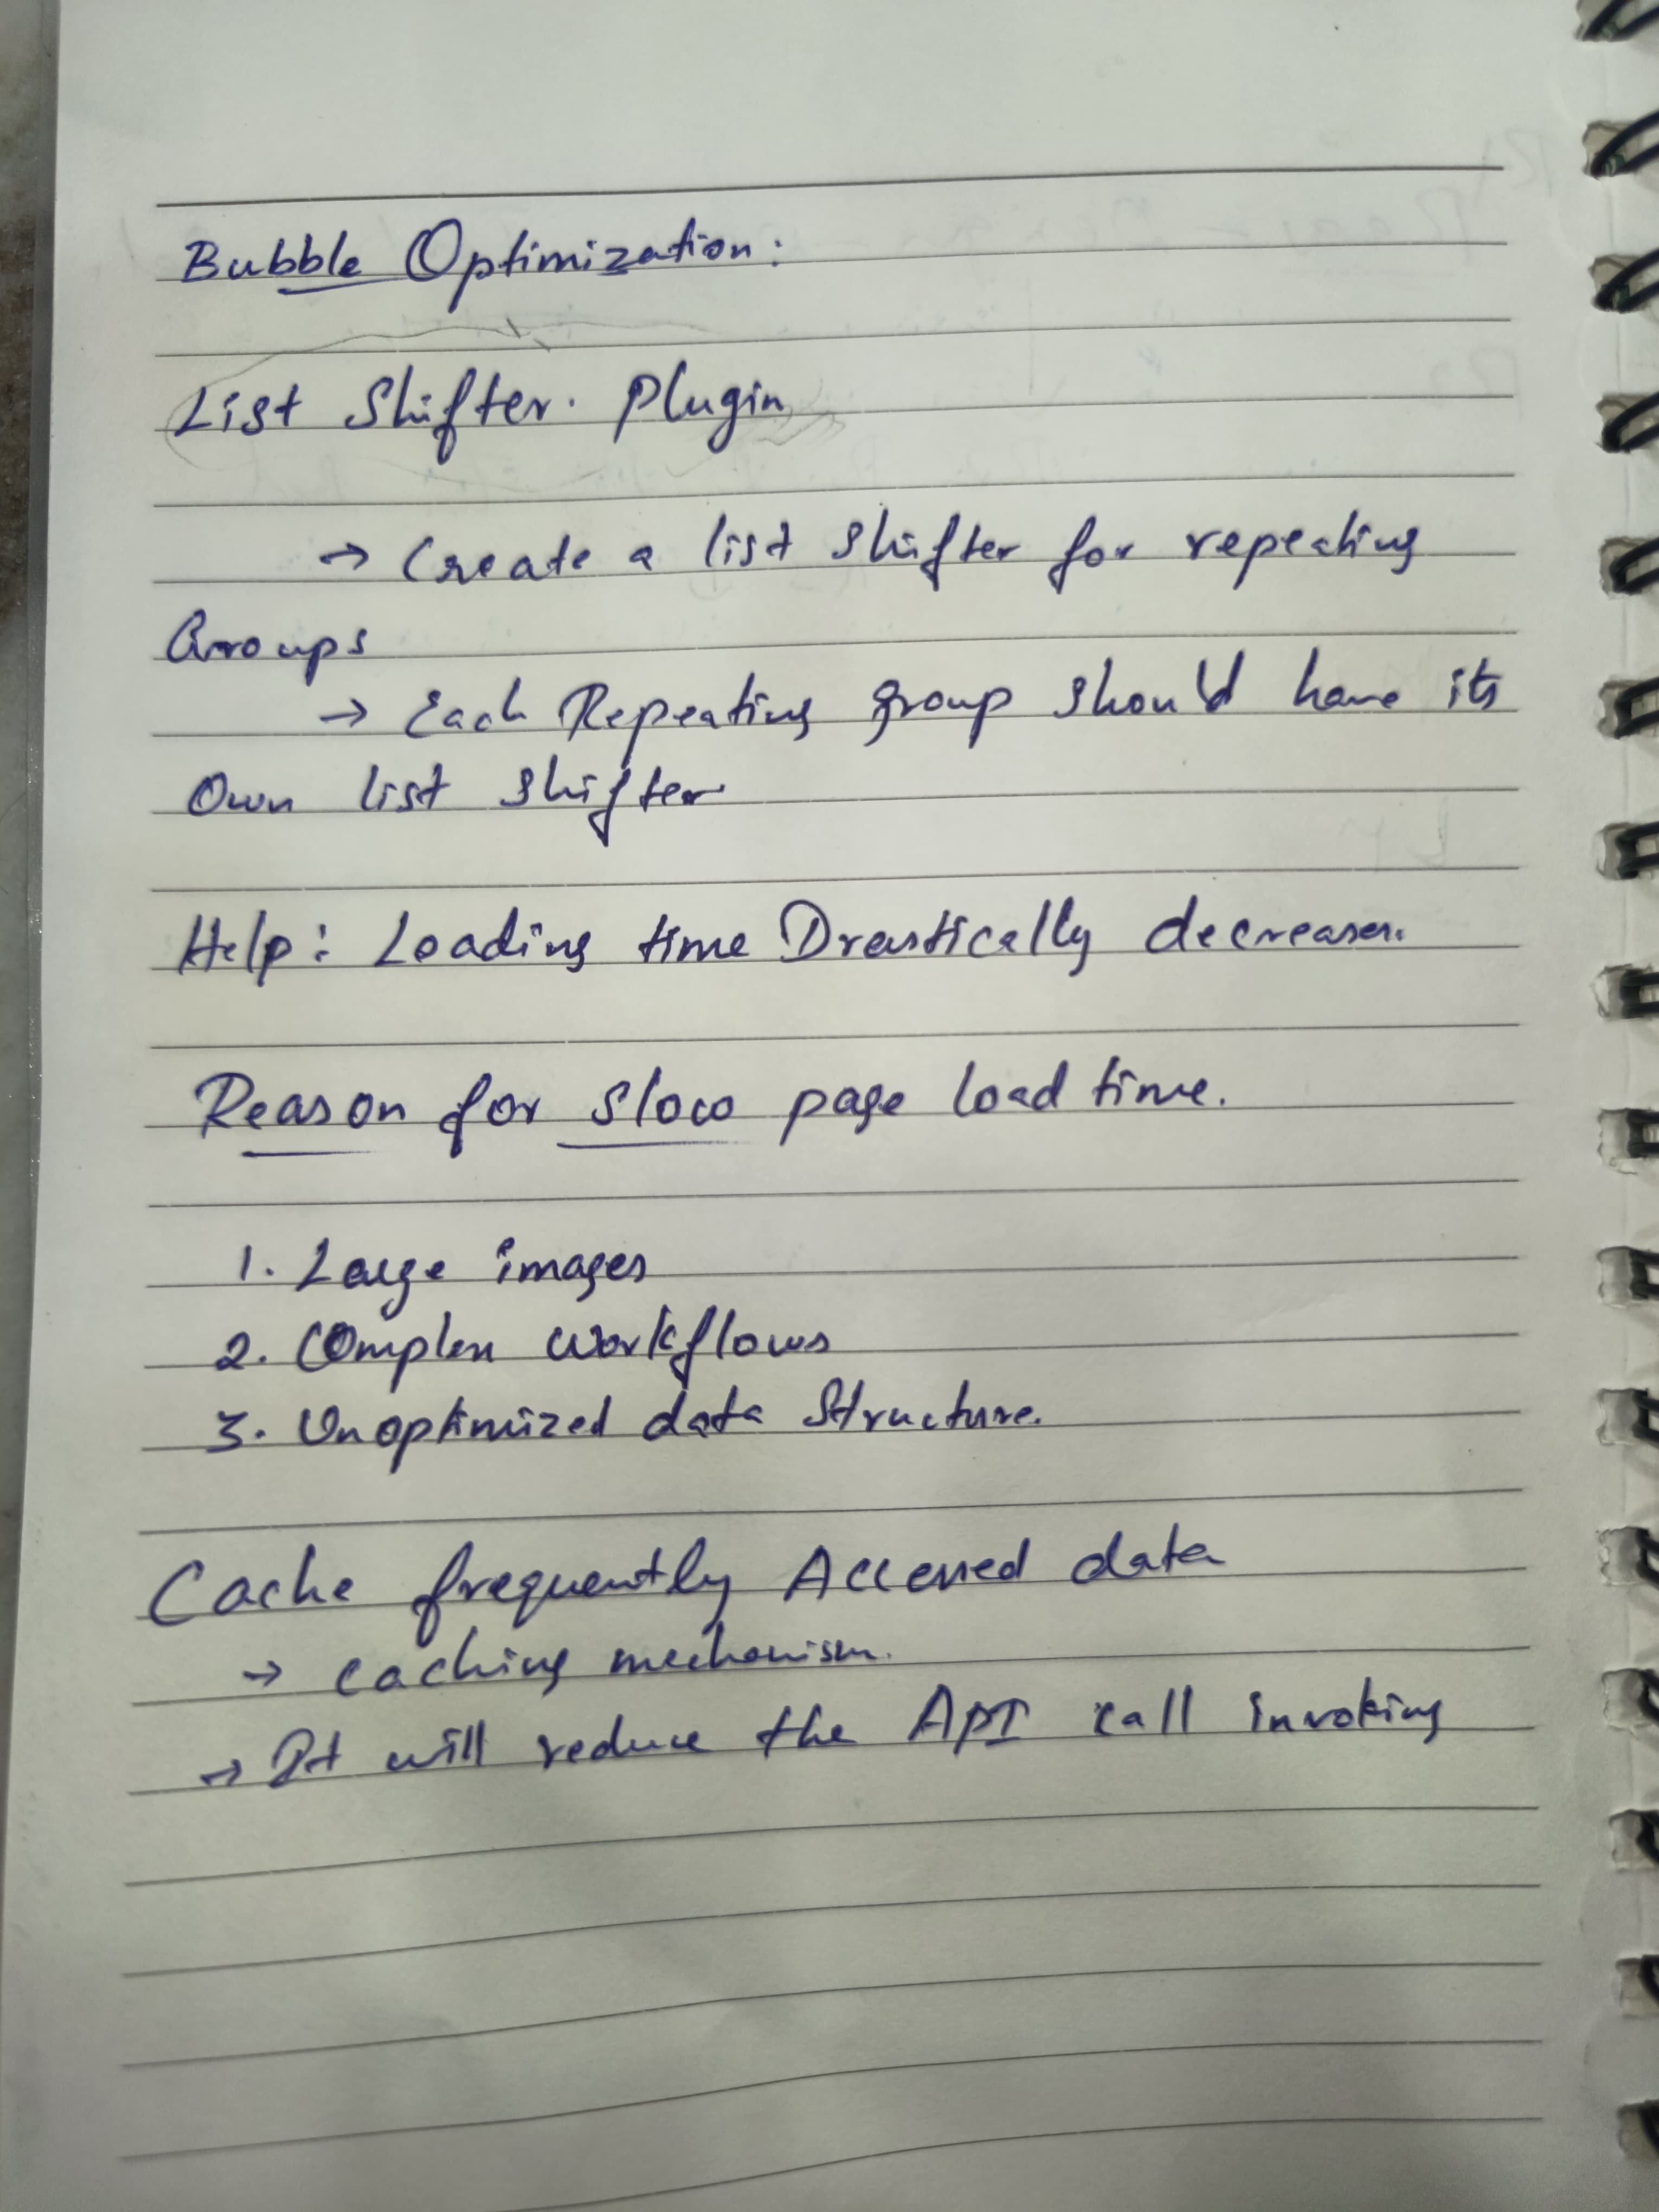 Bubble Optimization:
List Shifter. Plugin
→ Create a list shifter for repeating
Groups
→ Each Repeating group should have its
Own list shifter
Help: Loading time Drastically decreases.
Reason for slow page load time.
1. Large images
2. Complex workflows
3. Unoptimized data Structure.
Cache frequently Accessed data
→ caching mechanism.
→ It will reduce the API call invoking